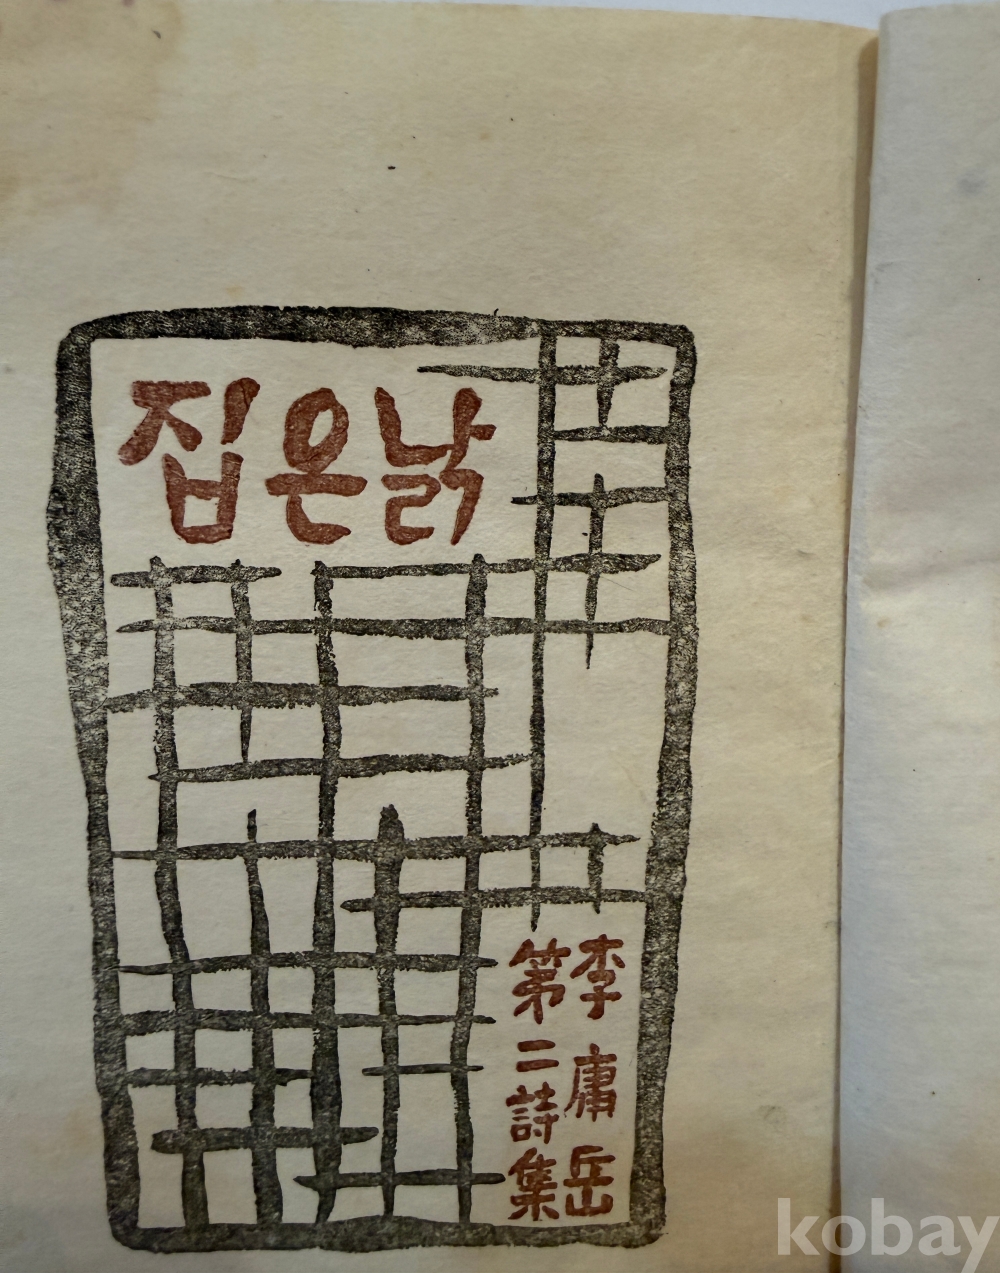 낡은집
李庸岳
第二詩集
kobay